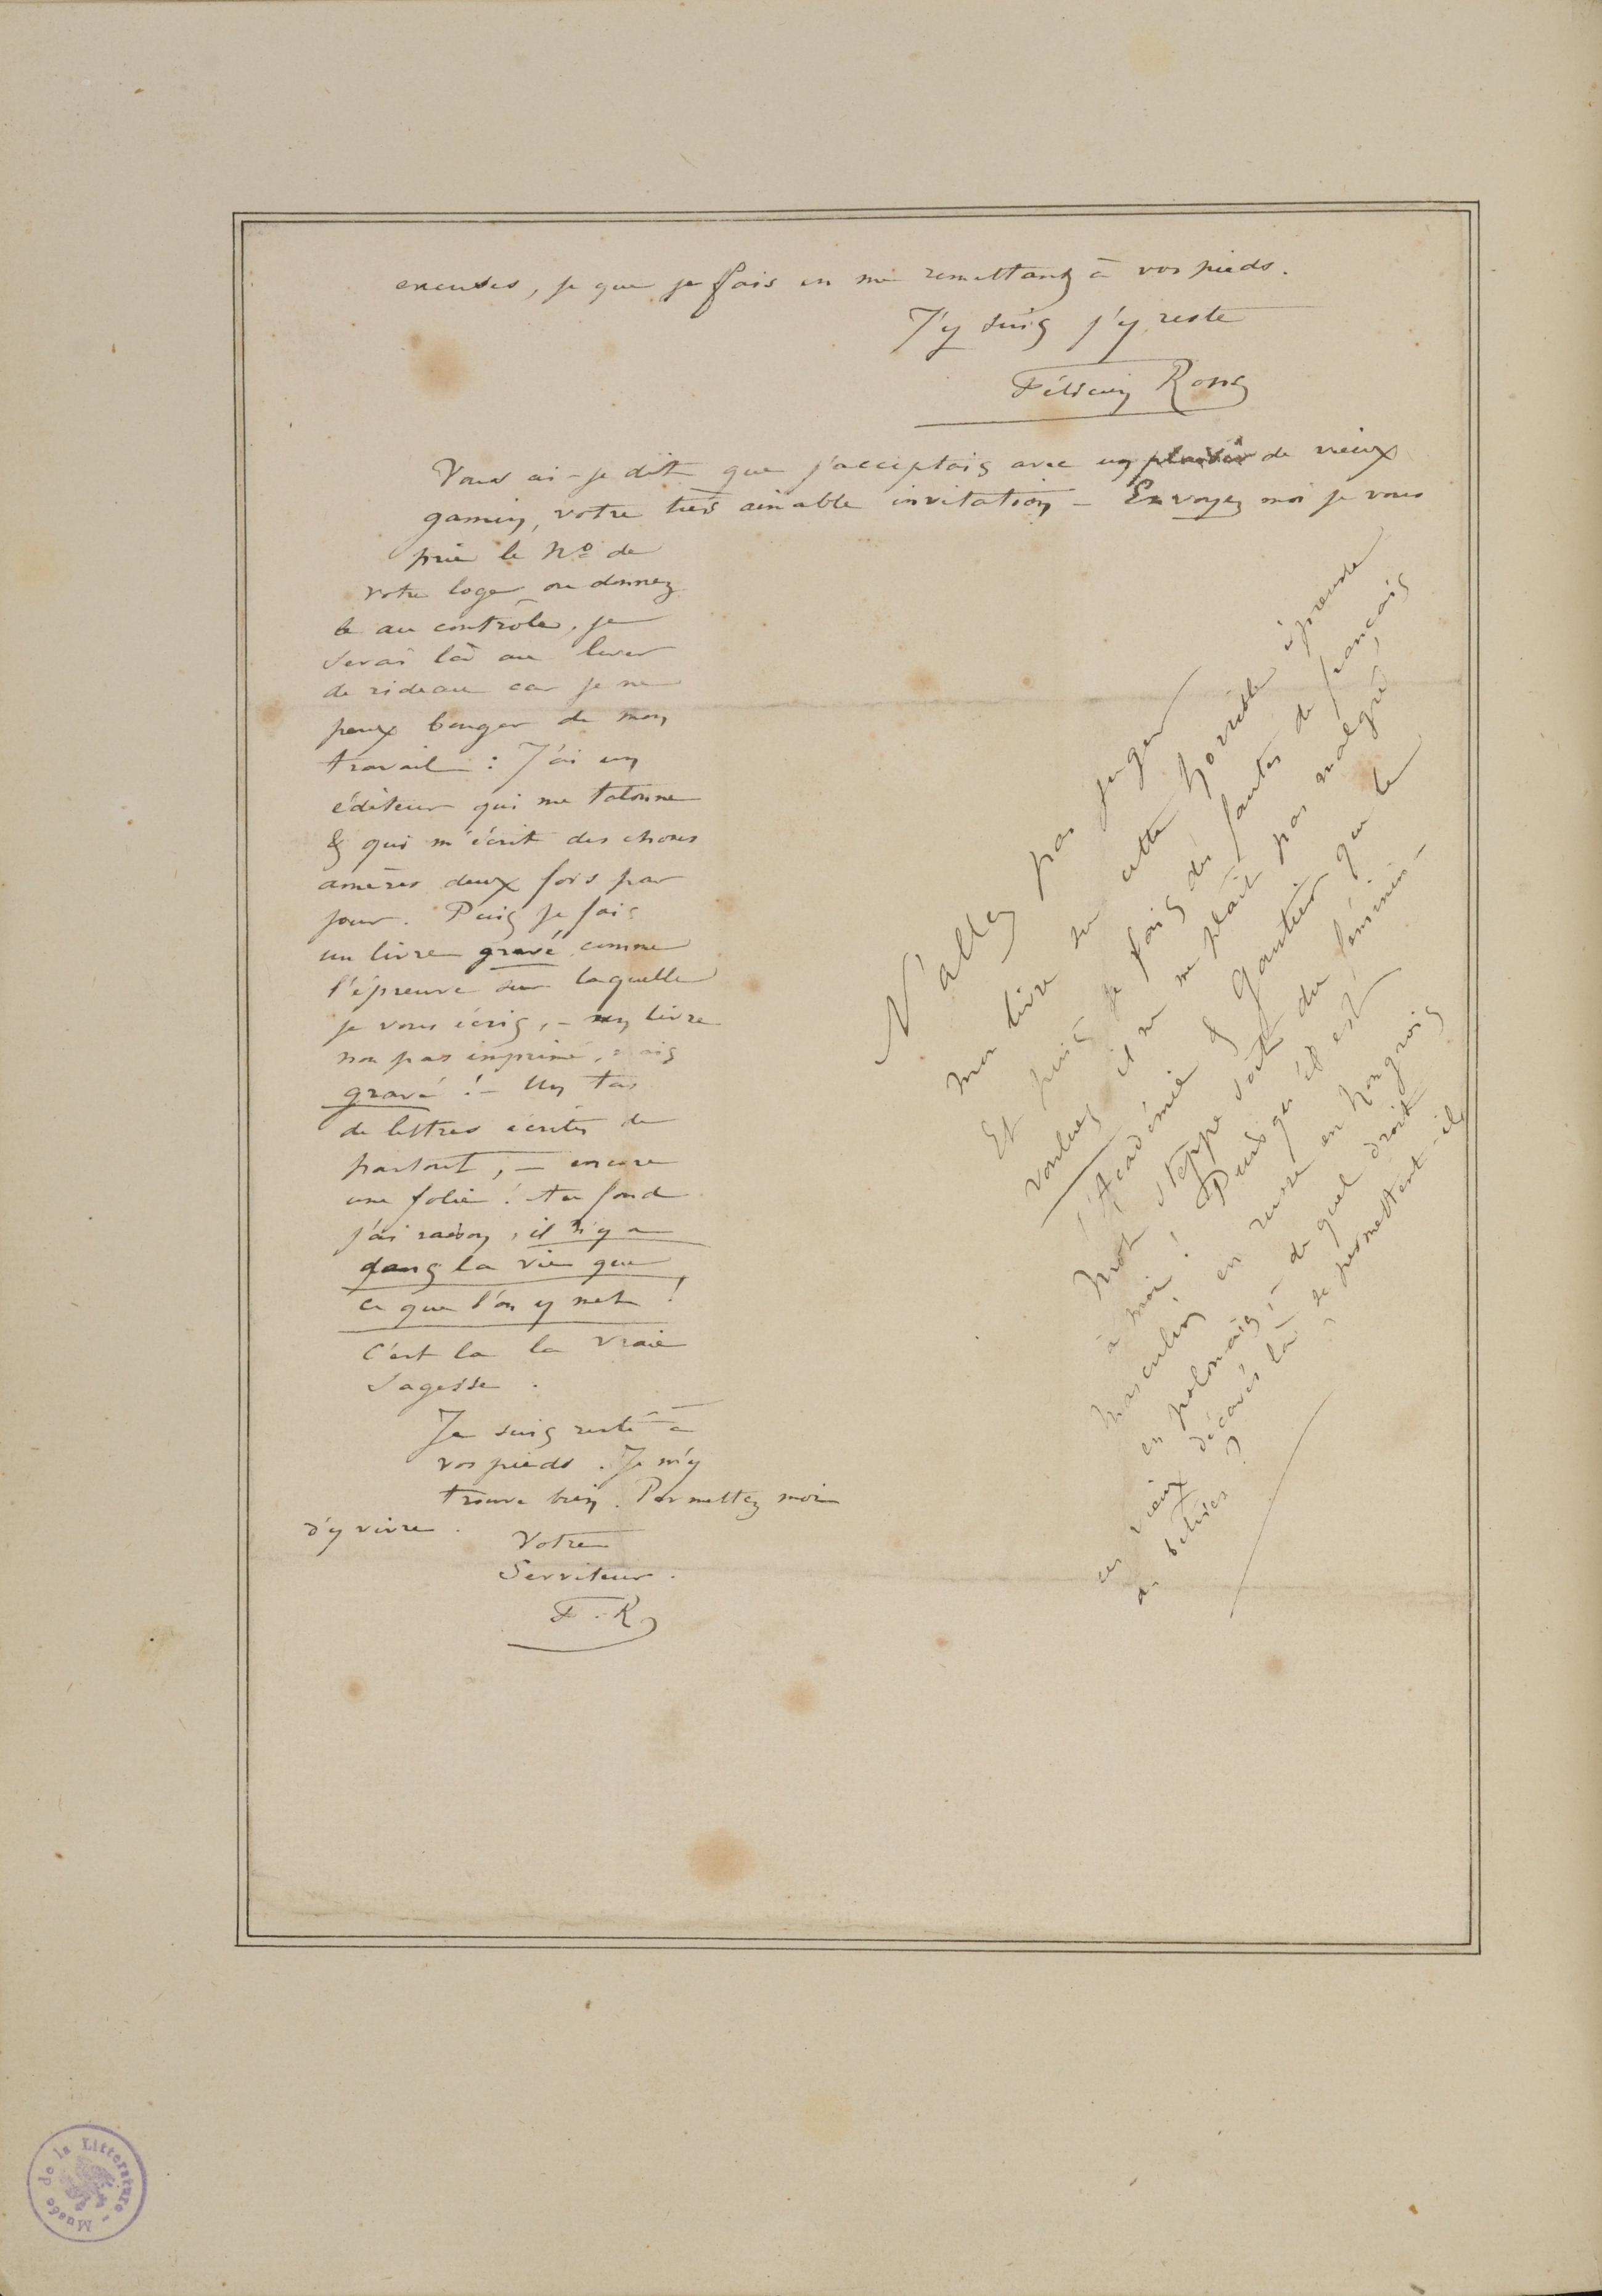 excuses, je que je fais en me remettant à vos pieds.
J'y suis j'y reste
Félicien Rops
Vous ai-je dit que j'acceptais avec un plaisir de vieux
gamin, votre très aimable invitation - Envoyez moi je vous
prie le No de
votre loge ou donnez
le au contrôle, je
serai là au lever
de rideau car je ne
peux bouger de mon
travail : J'ai un
éditeur qui me talonne
& qui m'écrit des choses
amères deux fois par
jour. Puis je fais
un livre gravé comme
l'épreuve sur laquelle
je vous écris, - un livre
non pas imprimé, mais
gravé ! - Un tas
de lettres écrites de
partout, - encore
une folie ! Au fond
j'ai raison, il n'y a
dans la vie que
ce que l'on y met !
C'est la la vraie
sagesse.
Je suis resté à
vos pieds. Je m'y
trouve bien. Permettez moi
d'y vivre.
Votre
Serviteur.
F. R
N'allez pas juger
mon livre sur cette horrible épreuve
Et puis je fais des fautes de français
voulues il ne me plait pas malgré
l'Académie & Gautier que le
mot steppe soit du féminin -
à moi ! Puisqu'il est
masculin en russe en hongrois
en polonais, - de quel droit
ces vieux décavés là se permettent-ils
des bêtises ?
Musée de la Littérature -